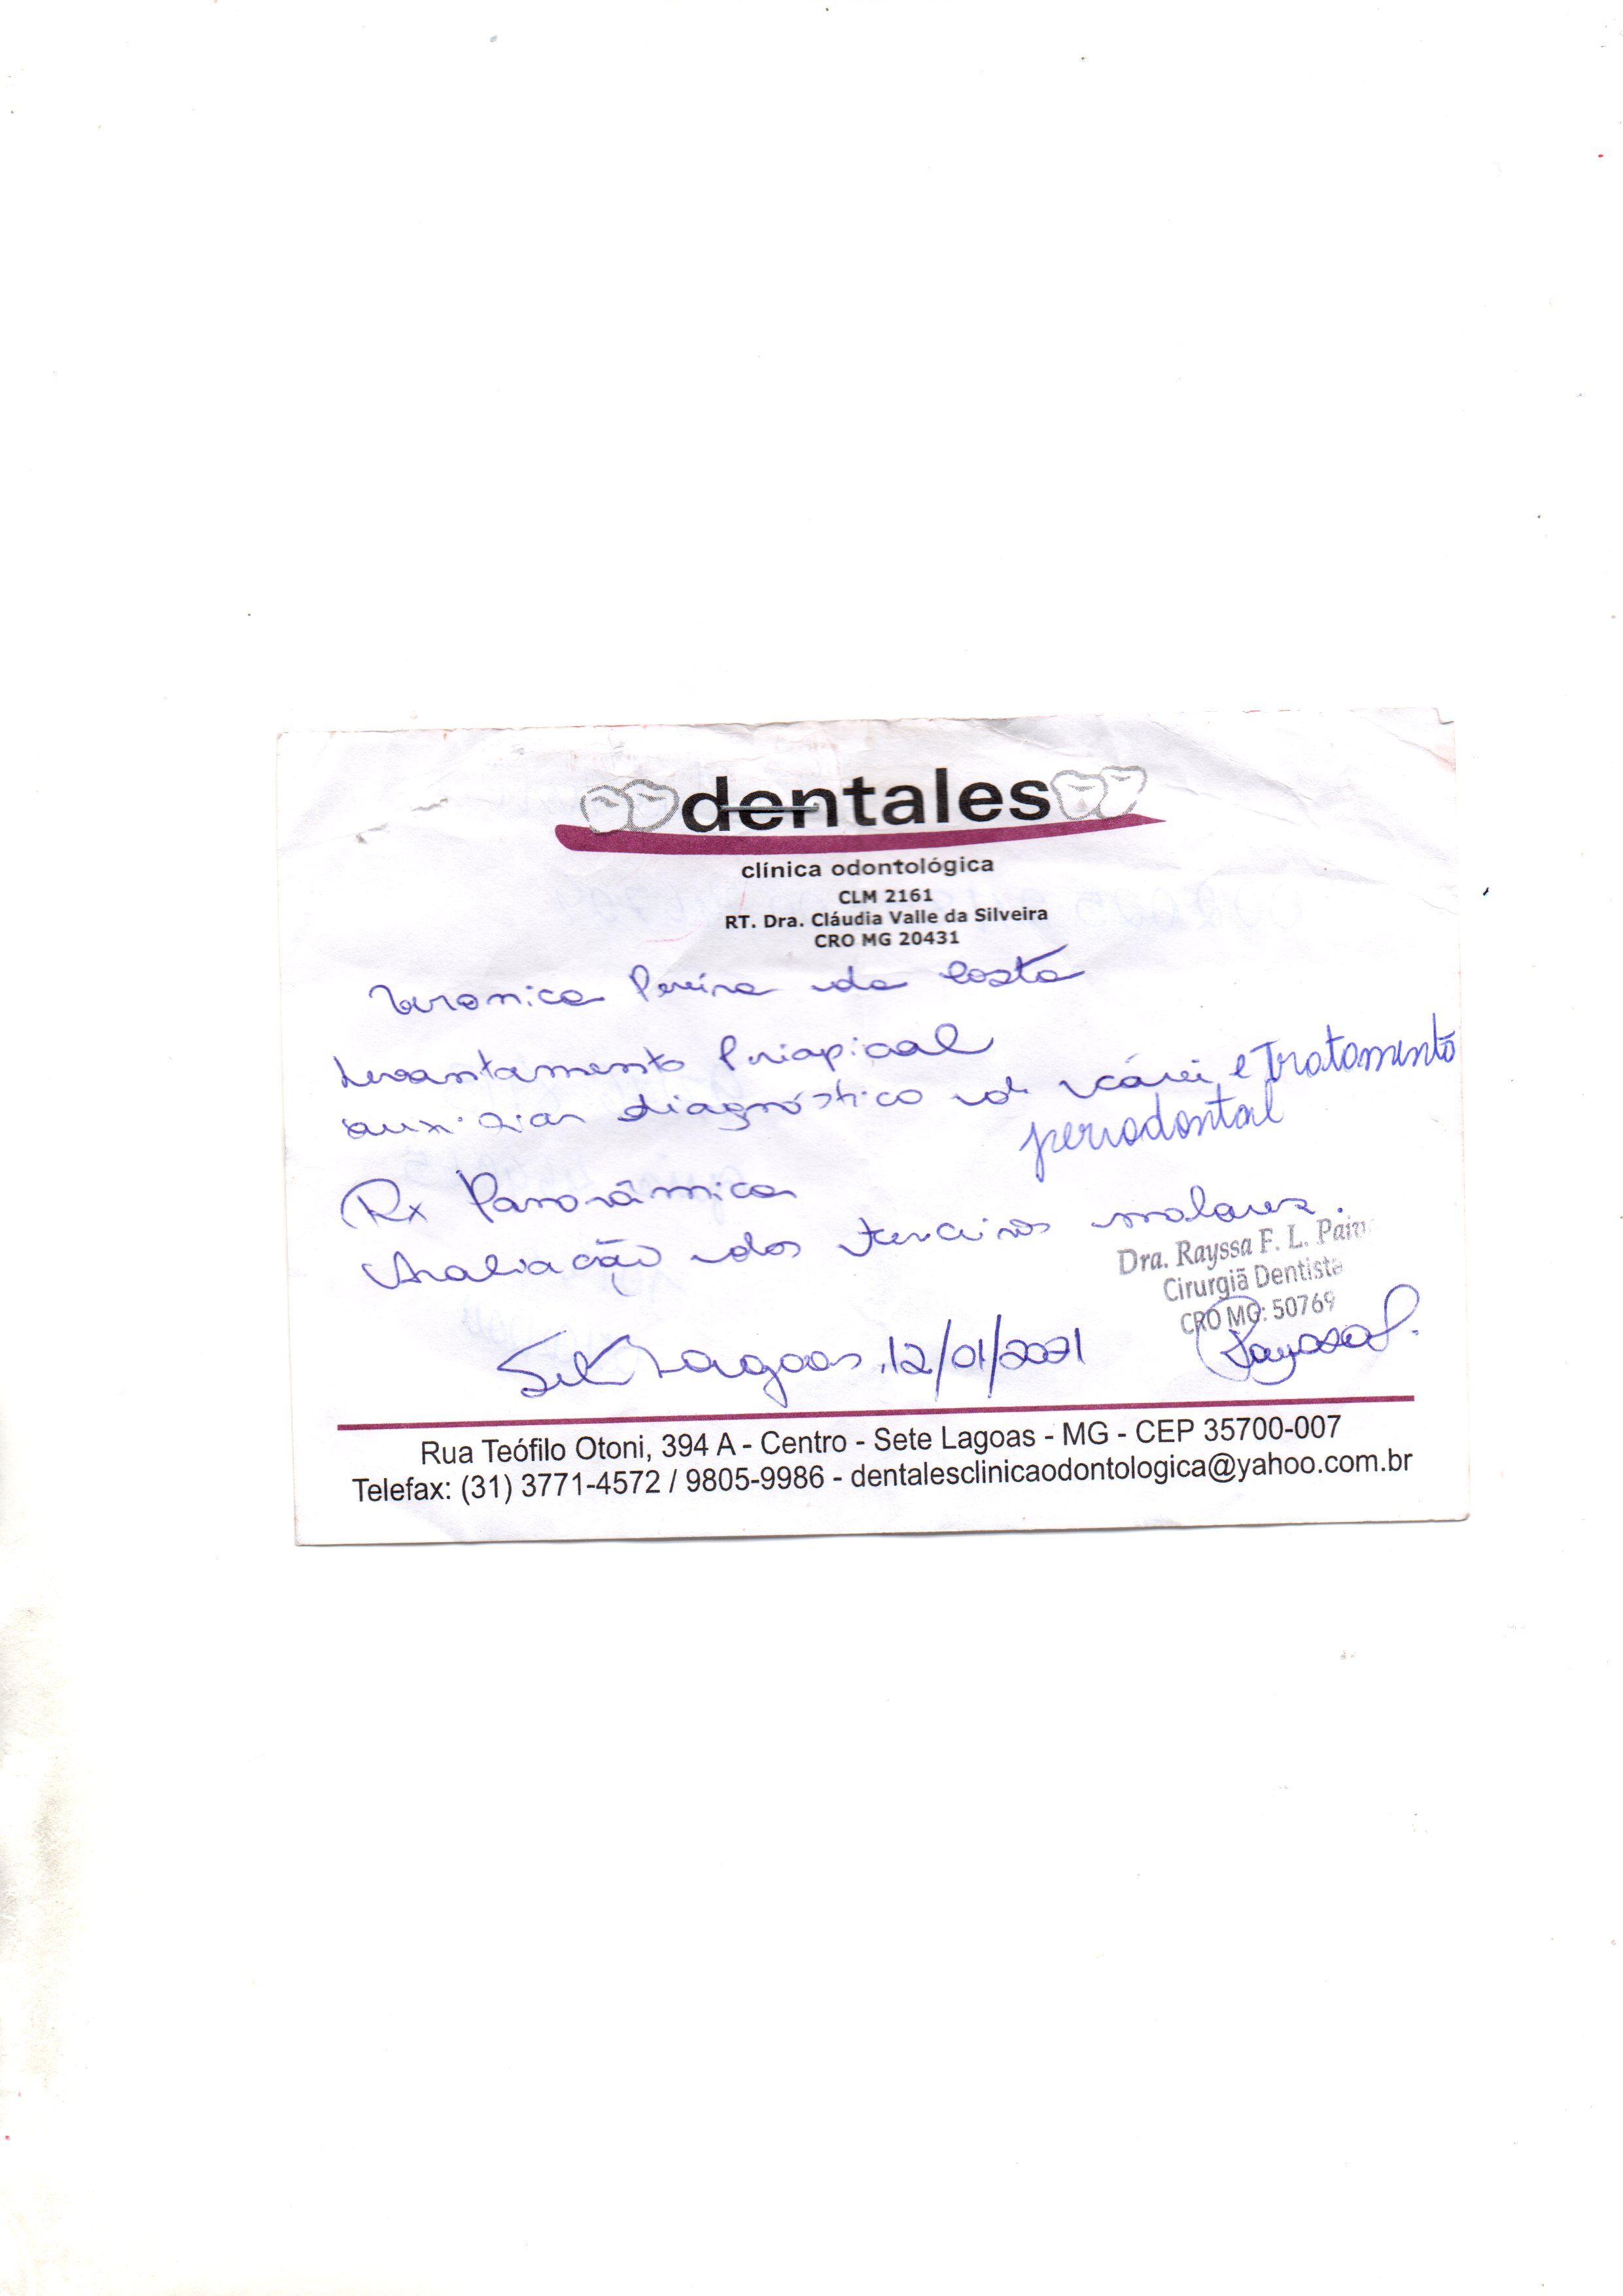 dentales
clínica odontológica
CLM 2161
RT. Dra. Cláudia Valle da Silveira
CRO MG 20431
Veronica Pereira da Costa
Levantamento Periapical
auxiliar diagnóstico de cárie e tratamento
periodontal
Rx Panorâmica
Avaliação dos terceiros molares.
Dra. Rayssa F. L. Paiv
Cirurgiã Dentista
CRO MG: 50769
Sete Lagoas, 12/01/2021
Rua Teófilo Otoni, 394 A - Centro - Sete Lagoas - MG - CEP 35700-007
Telefax: (31) 3771-4572 / 9805-9986 - dentalesclinicaodontologica@yahoo.com.br